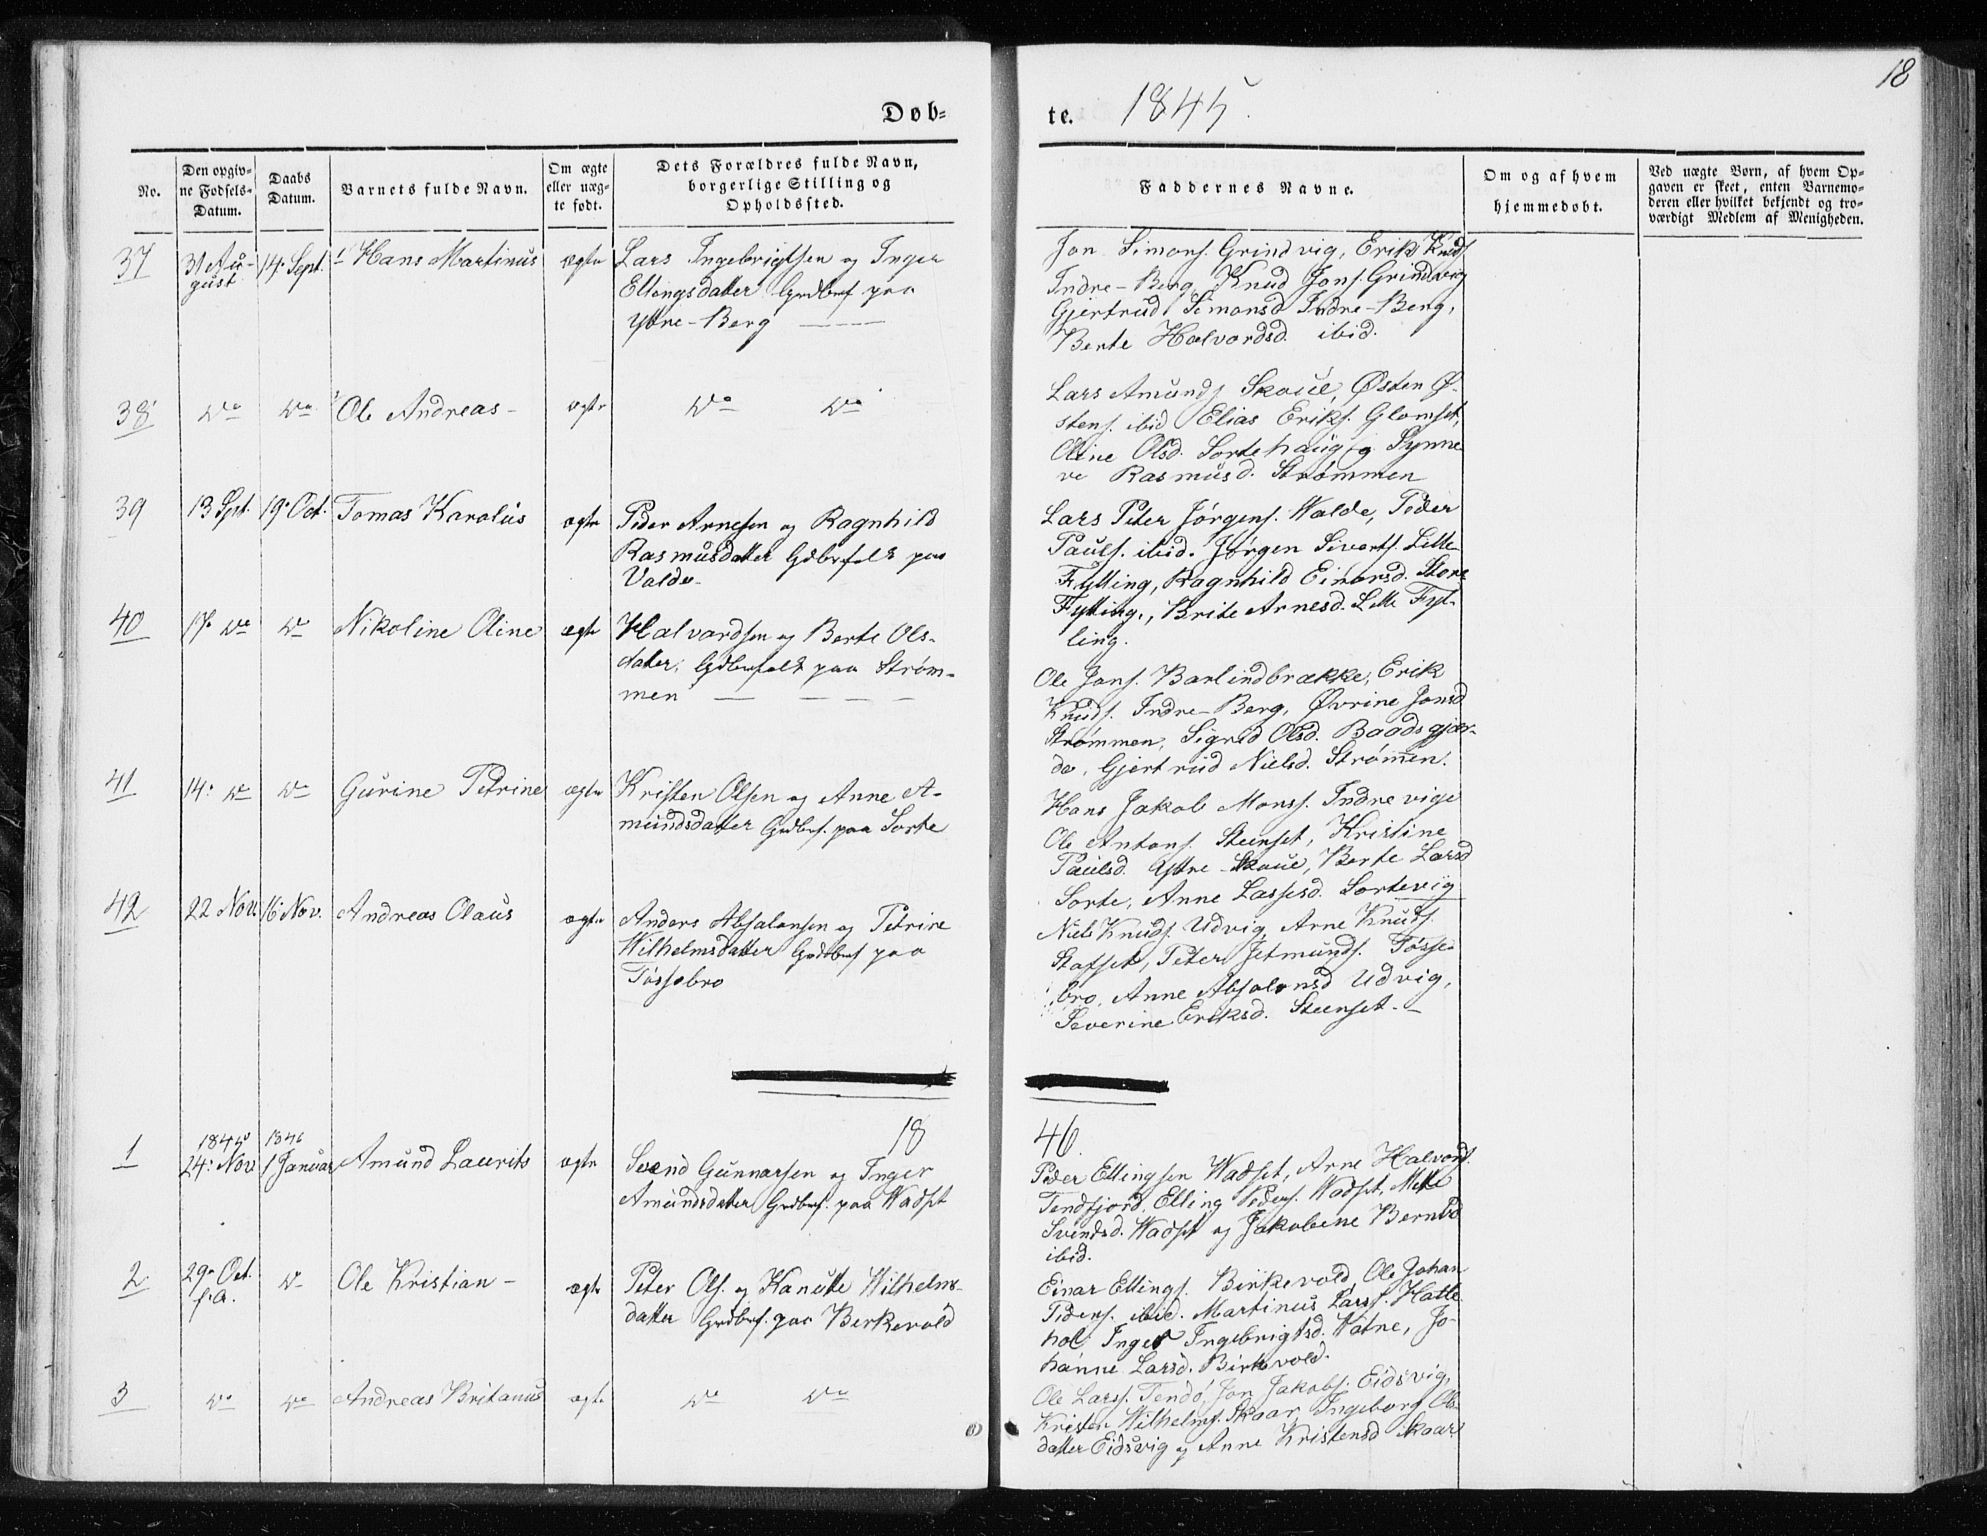 18
Døb-
te. 1845.
No.
Den opgiv-
ne Fødsels-
Datum.
Daabs
Datum.
Barnets fulde Navn.
Om ægte
eller uæg-
te født.
Dets Forældres fulde Navn,
borgerlige Stilling og
Opholdssted.
Faddernes Navne.
Om og af hvem
hjemmedøbt.
Ved uægte Børn, af hvem Op-
gaven er skeet, enten Barnemo-
deren eller hvilket bekjendt og tro-
værdigt Medlem af Menigheden.
37
31 Au-
gust.
14. Sept.
Hans Martinus
ægte
Lars Ingebrigtsen og Inger
Ellingsdatter Grdbrf paa
Ytre-Berg
Jon Simons. Grindvig, Erik Knuds.
Indre-Berg, Knud Jons. Grindvig
Gjertrud Simonsd Indre-Berg,
Berte Halvordsd. ibid.
38
do
do
Ole Andreas-
ægte
do do
Lars Amunds. Skoue, Østen Ø-
stens. ibid Elias Eriks. Glomset,
Oline Olsd. Sortehaug og Synne
ve Rasmusd. Strømmen
39
13 Spt.
19. Oct.
Tomas Karolus
ægte
Peder Arnesen og Ragnhild
Rasmusdatter Gdbrfolk paa
Valde
Lars Peter Jørgens. Walde, Peder
Pauls. ibid. Jørgen Siverts. Lille
Fylling, Ragnhild Einarsd. Store
Fylling, Brite Arnesd. Lille Fyl-
ling.
40
17. do
do
Nikoline Oline
ægte
Halvardsen og Berte Ols-
datter, Gdbrfolk paa Strøm-
men
Ole Jons. Barlindbrække, Erik
Knuds. Indre-Berg, Øvrine Jonsd
Strømmen, Sigrid Olsd. Baadsgjær-
de, Gjertrud Nielsd. Strømmen.
41
14. do
do
Gurine Petrine
ægte
Kristen Olsen og Anne A-
mundsdatter Grdbrf. paa Sorte
Hans Jakob Monss. Indrevige
Ole Antons. Steenset, Kristine
Paulsd. Ytre-Skoue, Berte Larsd
Sorte, Anne Lassesd. Sortevig
42
22 Nov.
16 Nov.
Andreas Olaus
ægte
Anders Absalonsen og Petrine
Wilhelmsdatter Grdbrf paa
Tøssebro
Niels Knuds. Udvig, Arne Knuds.
Stafset, Peter Jetmunds. Tøsse-
bro, Anne Absalonsd Udvig,
Severine Eriksd. Steenset.
18
46.
1
1845
24. Nov
1846
1 Januar
Amund Laurits
ægte
Svend Gunnarsen og Inger
Amundsdatter Grdbrf. paa Wadset
Peder Ellingsen Wadset, Arne Halvords.
Tendfjord, Elling Peders. Wadset, Mette
Svendsd. Wadset og Jakobine Berntsd
ibid.
2
29. Oct.
f.A.
do
Ole Kristian-
ægte
Peter Ols. og Kanutte Wilhelms-
datter Grdbrf. paa Berkevold
Einar Ellings. Birkevold, Ole Johan
Peders. ibid. Martinus Larss. Hatle-
hol, Inger Ingebrigtsd. Vatne, Jo-
hanne Larsd. Birkevold.
3
do
do
Andreas Britanus
ægte
do do
Ole Larss. Tendø, Jon Jakobs. Eidsvig,
Kristen Wilhelms. Skaar, Ingeborg Ols-
datter Eidsvig og Anne Kristensd Skaar